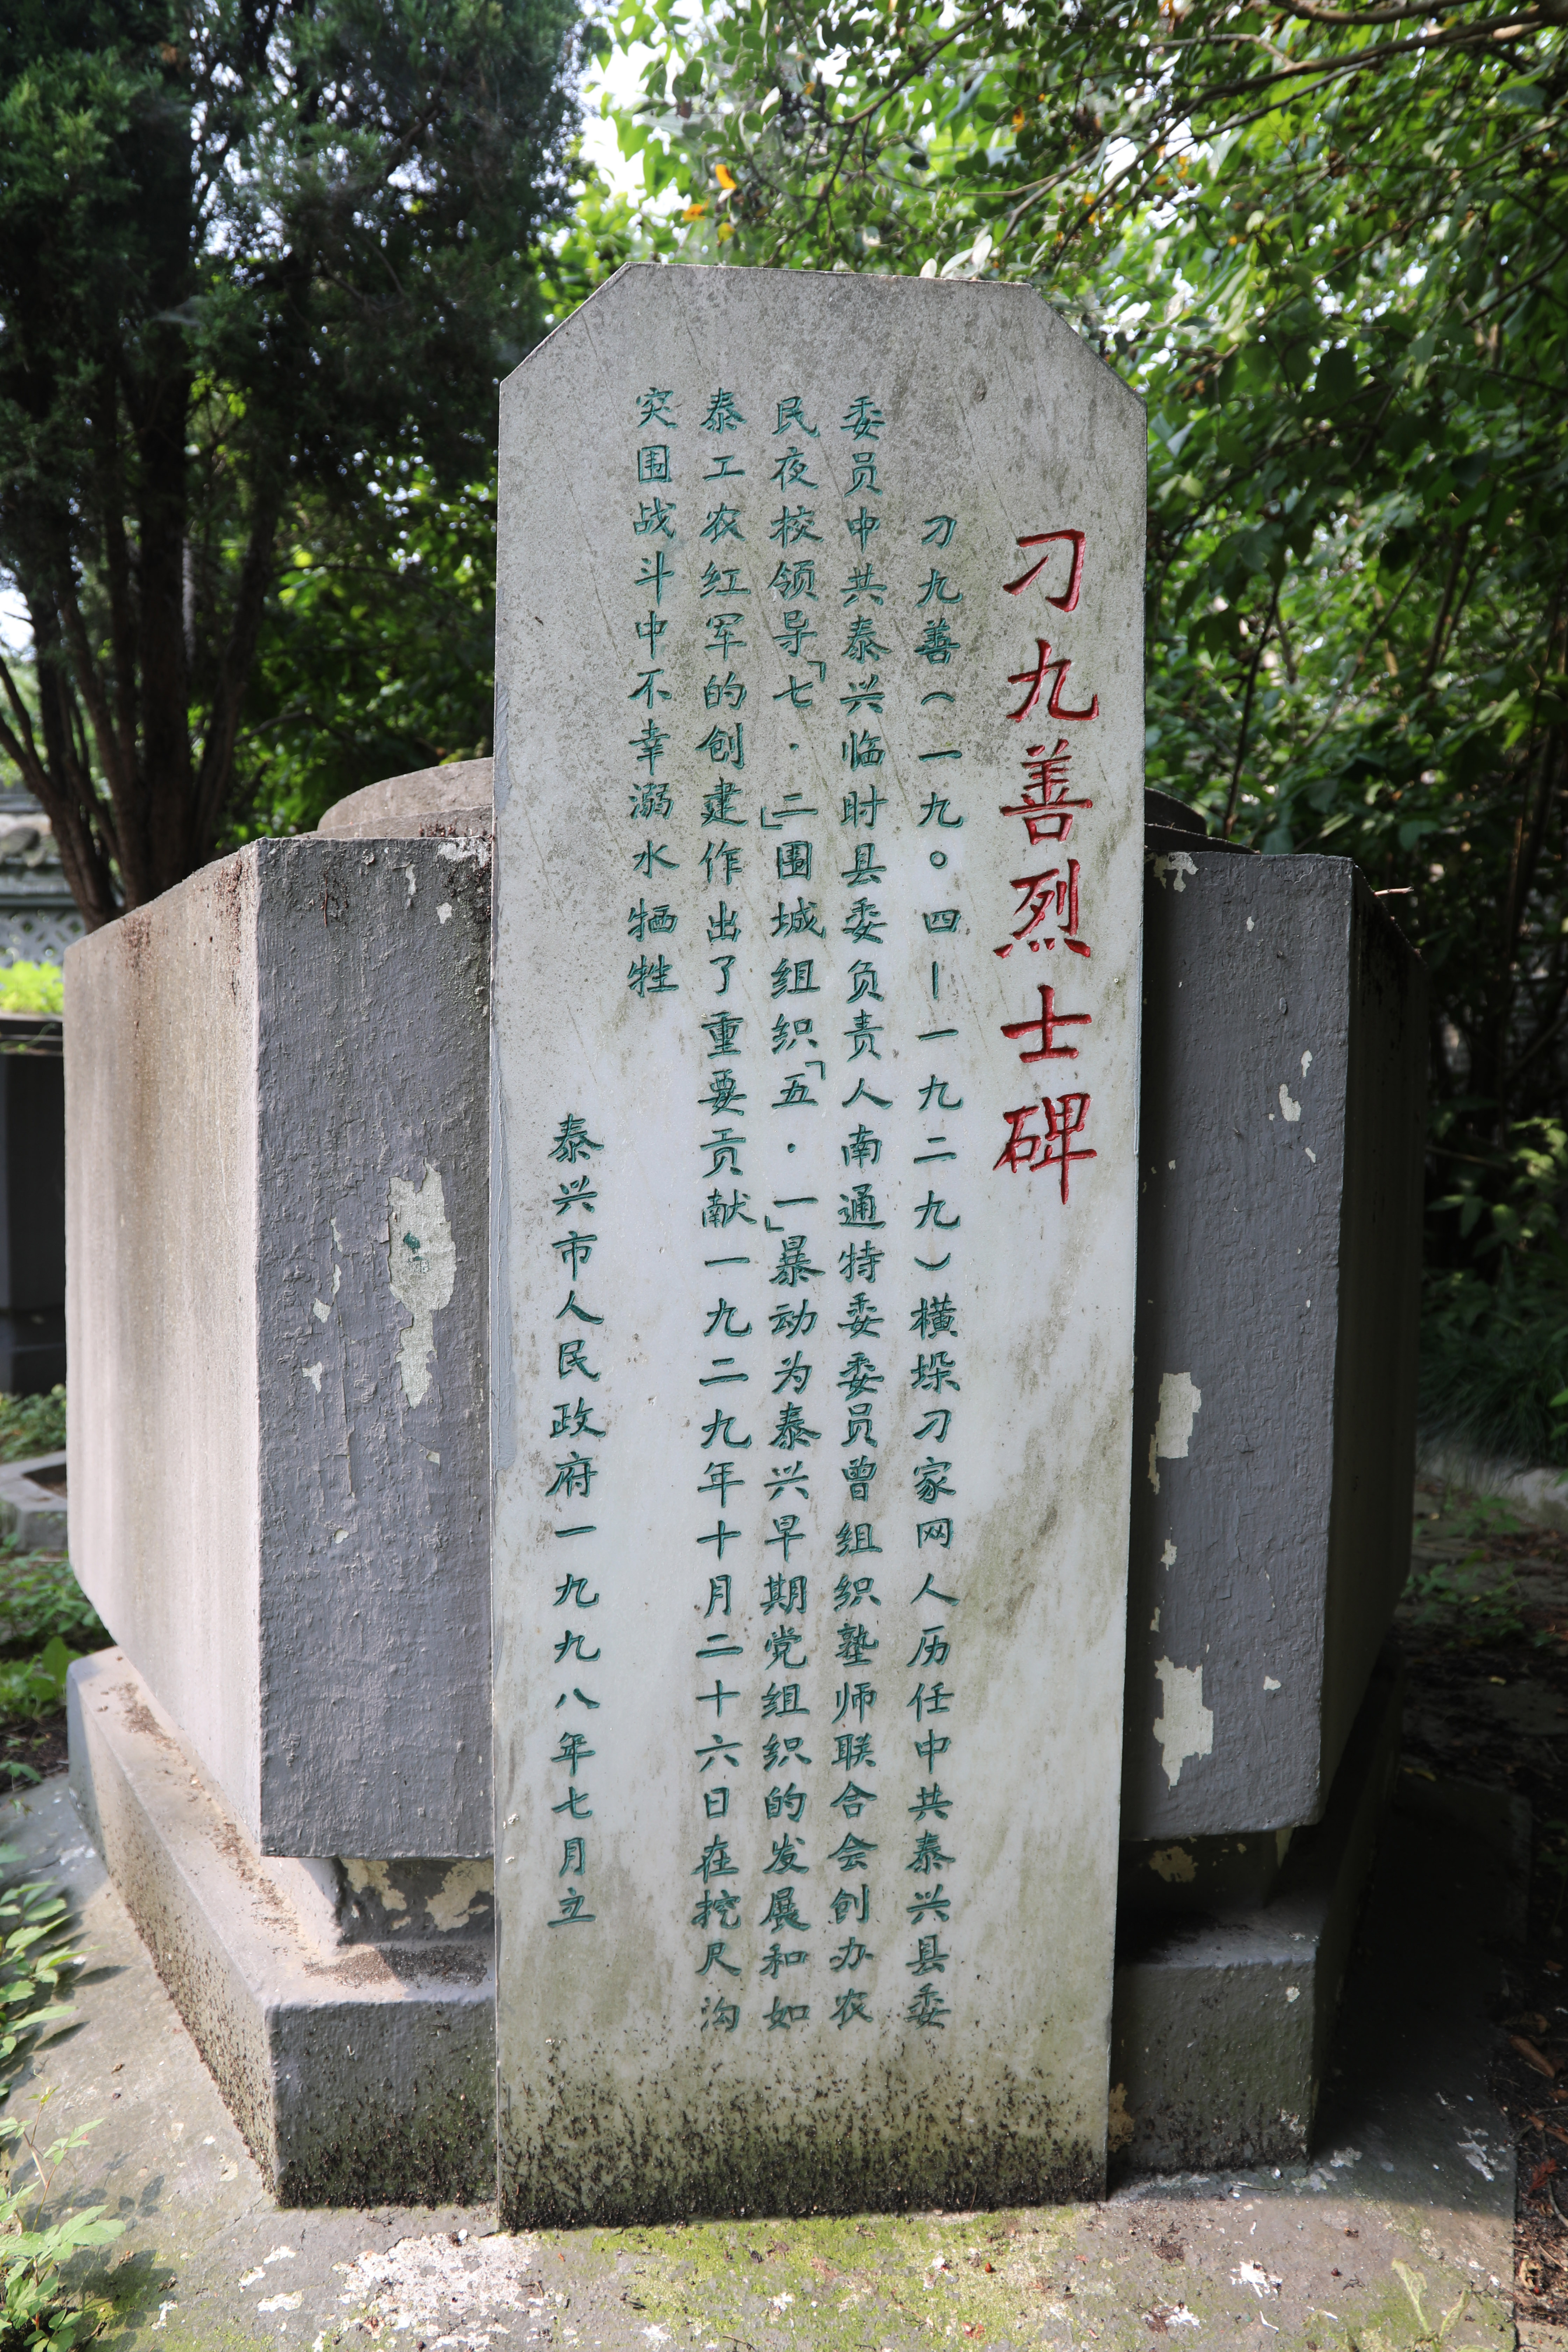 刁九善烈士碑
刁九善（一九○四—一九二九）横垛刁家网人历任中共泰兴县委
委员中共泰兴临时县委负责人南通特委委员曾组织塾师联合会创办农
民夜校领导「七·二」围城组织「五·一」暴动为泰兴早期党组织的发展和如
泰工农红军的创建作出了重要贡献一九二九年十月二十六日在挖尺沟
突围战斗中不幸溺水牺牲
泰兴市人民政府一九九八年七月立